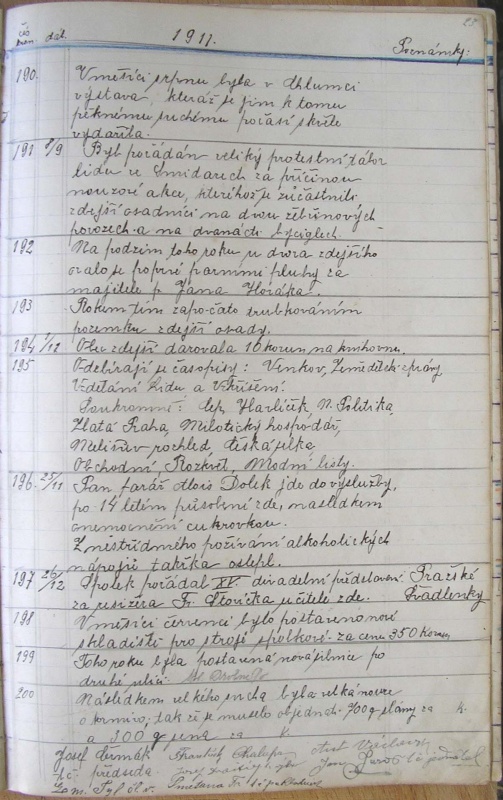 25
čís. dat. 1911. Poznámky:
190. V měsíci srpnu byla v Chlumci
výstava, kteráž se jim k tomu
pěknému suchému počasí skvěle
vydařila.
191 8/9 Byl pořádán veliký protestní tábor
lidu ve Smidarech za příčinou
nouzové akce, kteréhož se súčastnili
zdejší osadníci na dvou žebřinových
povozech a na dvanácti bycíglech.
192 Na podzim toho roku u dvora zdejšího
oralo se poprvé parními pluhy za
majitele p. Jana Horáka.
193 Rokem tím započato trubkováním
pozemků zdejší osady.
194 Obec zdejší darovala 10 korun na knihovnu.
195 Odebírají se časopisy: Venkov, Zemědělské zprávy
Vzdělání lidu a Vzkříšení.
Soukromně: Havlíček, N. Politika,
Zlatá Praha, Milotický hospodář,
pohled, Česká
Obchodní, Rozkvět, Módní listy.
196. 25/11 Pan farář Alois Dolek jde do výslužby,
po 14 letém působení zde, následkem
onemocnění cukrovkou.
Z nestřídmého požívání alkoholických
nápojů takřka oslepl.
197 26/12 Spolek pořádal XV. divadelní představení Pražské
za režiséra Fr. učitele zde. Švadlenky
198 V měsíci červenci bylo postaveno nové
skladiště pro stroje spolkové za cenu 350 korun
199 Toho roku byla postavena nová silnice po
druhé ulici.
200 Následkem velkého sucha byla velká nouze
o krmivo; tak že se muselo objednat 700 q slámy za k.
a 100 q sena za k.
Josef Čermák František Chalupa Ant.
t.č. předseda. Josef Jan
zam. Smetana Fr. t.č. pokladník